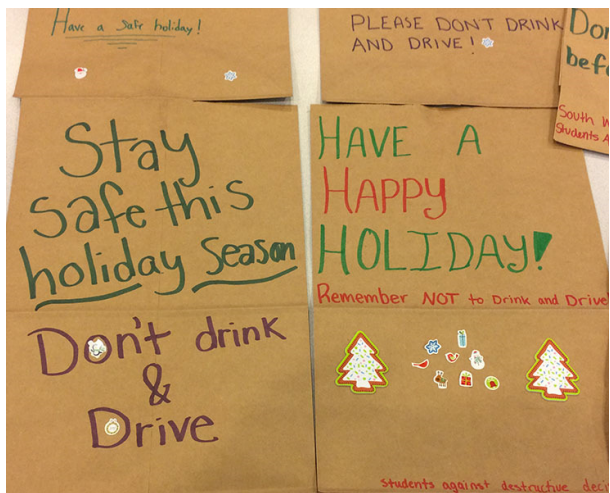 Have a safe holiday!
PLEASE DON'T DRINK
AND DRIVE!
Don
befo
South W
Students A
Stay
Safe this
holiday Season
Don't drink
&
Drive
HAVE A
HAPPY
HOLIDAY!
Remember NOT to Drink and Drive
Students against destructive deci